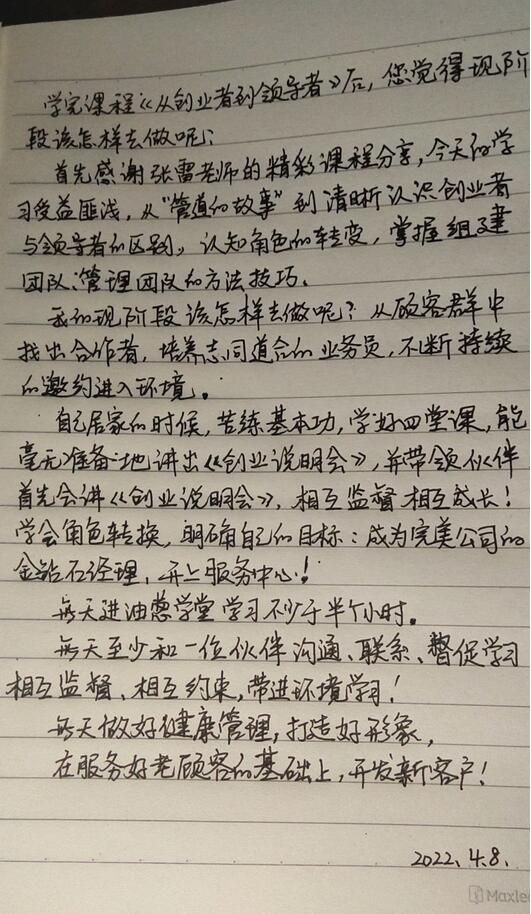 学完课程《从创业者到领导者》后，您觉得现阶
段该怎样去做呢？
首先感谢张雷老师的精彩课程分享，今天的学
习受益匪浅，从“管道的故事”到清晰认识创业者
与领导者的区别。认知角色的转变，掌握组建
团队、管理团队的方法技巧。
我的现阶段该怎样去做呢？从顾客群中
找出合作者，培养志同道合的业务员，不断持续
的邀约进入环境。
自己居家的时候，苦练基本功，学好四堂课，能
毫无准备地讲出《创业说明会》，并带领伙伴
首先会讲《创业说明会》，相互监督相互成长！
学会角色转换，明确自己的目标：成为完美公司的
金钻石经理，开上服务中心！
每天进油葱学堂学习不少于半个小时。
每天至少和一位伙伴沟通、联系、督促学习
相互监督、相互约束，带进环境学习！
每天做好健康管理，打造好形象，
在服务好老顾客的基础上，开发新客户！
2022.4.8.
Maxle